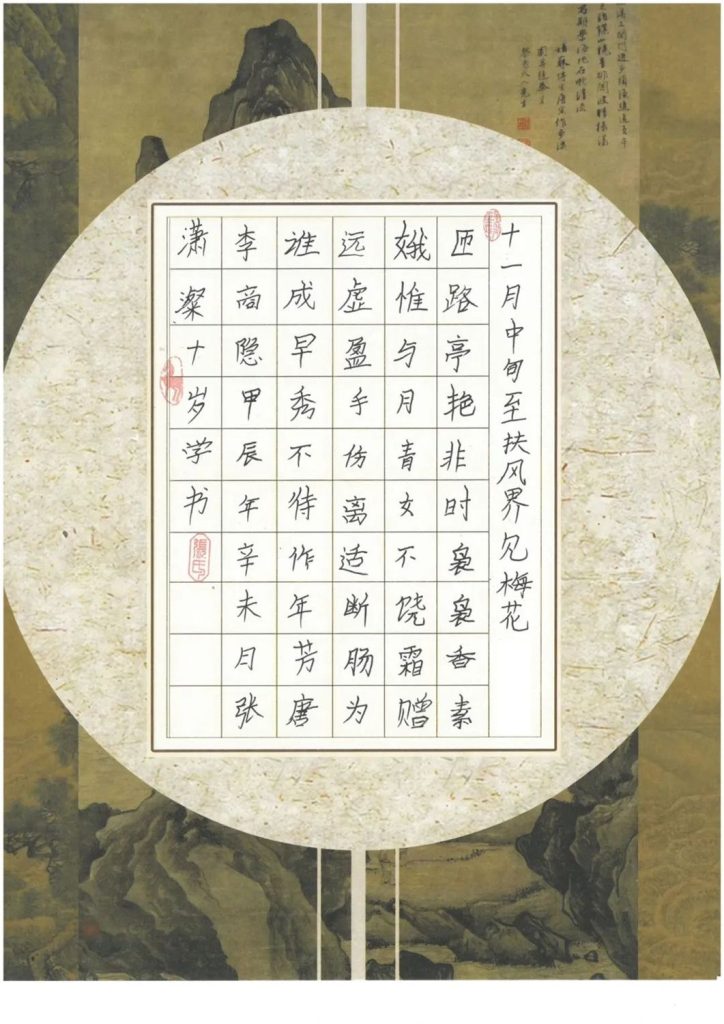 十一月中旬至扶风界见梅花
匝路亭艳非时裛裛香素
娥惟与月青女不饶霜赠
远虚盈手伤离适断肠为
谁成早秀不待作年芳唐
李商隐甲辰年辛未月张
潇澯十岁学书
張氏印